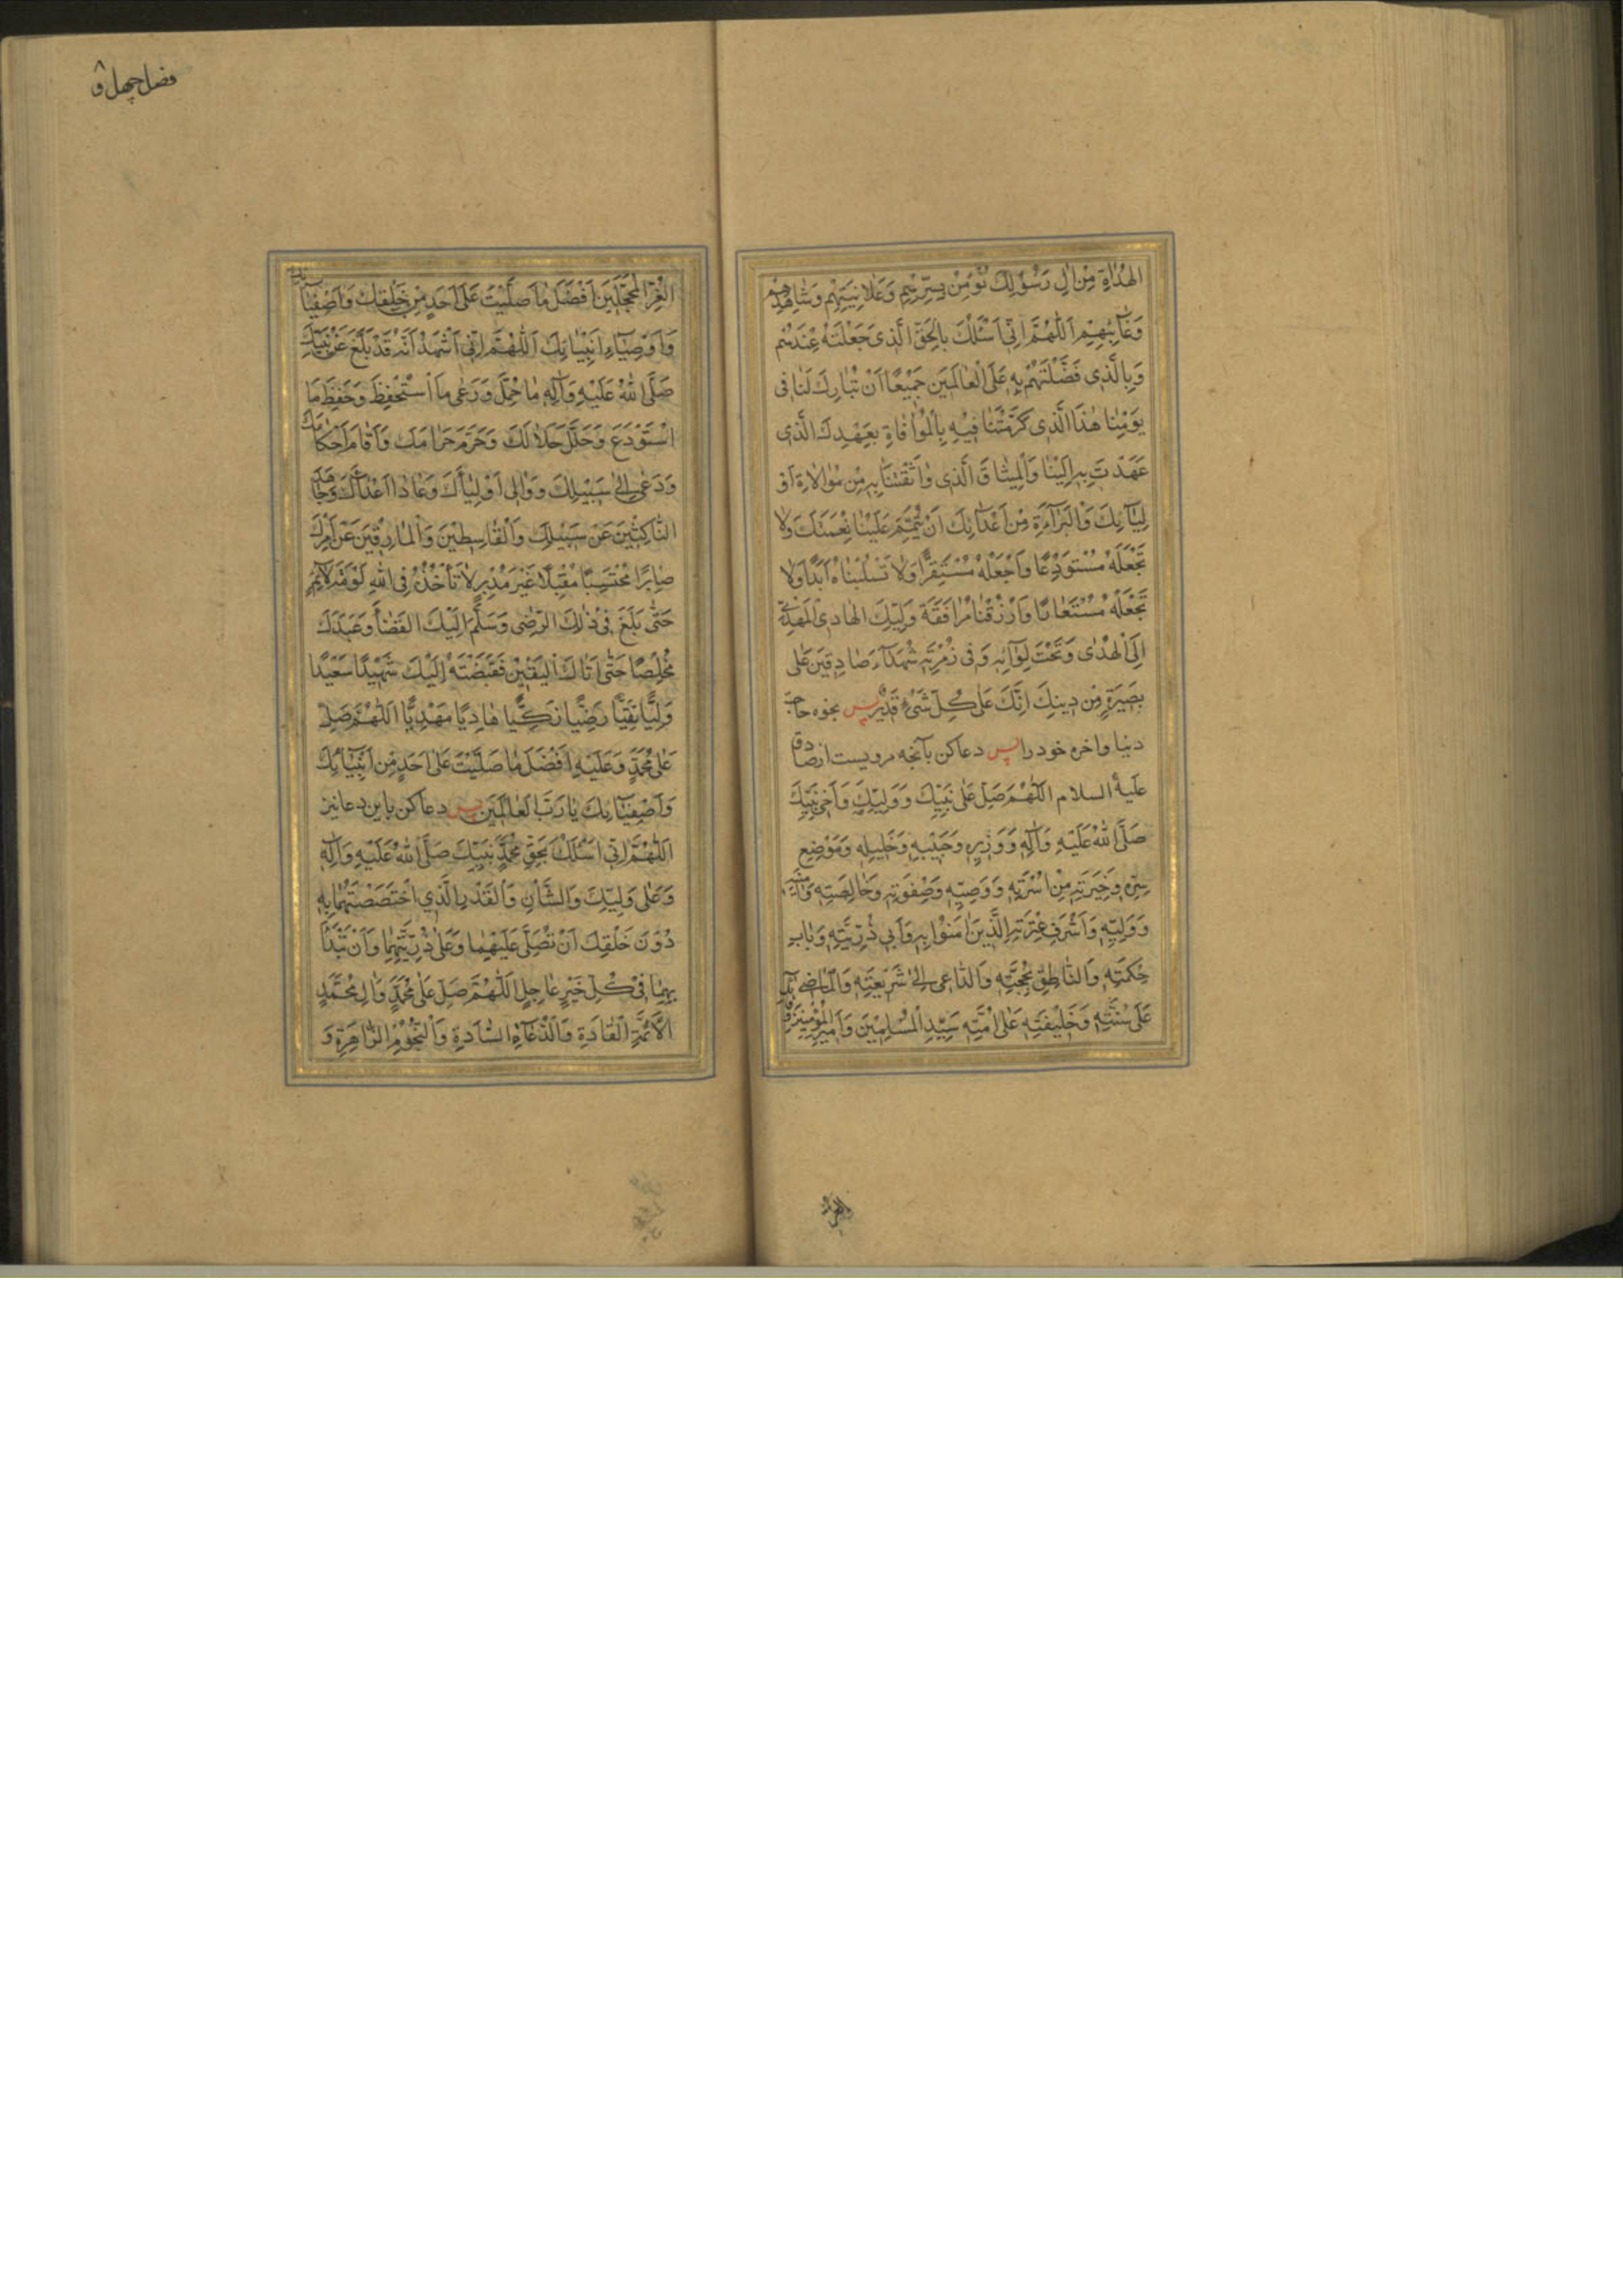 الهُدٰاةِ مِنْ اٰلِ رَسُوْلِكَ نُؤْمِنُ بِسِرِّهِمْ وَعَلاٰنِيَتِهِمْ وَشٰاهِدِهِمْ
وَغٰآئِبِهِمْ اَللّٰهُمَّ اِنّي اَسْئَلُكَ بِالْحَقِّ الَّذى جَعَلْتَهُ عِنْدَهُمْ
وَبِالَّذى فَضَّلْتَهُمْ بِهِ عَلَى الْعٰالَمينَ جَميْعًا اَنْ تُبٰارِكَ لَنٰا فى
يَوْمِنٰا هٰذَا الَّذى كَرَّمْتَنٰا فيْهِ بِالْمُوٰافٰاةِ بِعَهْدِكَ الَّذى
عَهَدْتَ بِهِ اِلَيْنٰا وَالْميثٰاقَ الَّذى وٰاثَقْتَنٰا بِهِ مِنْ مُوٰالاٰةِ اَوْ
لِيٰآئِكَ وَالْبَرٰآءَةِ مِنْ اَعْدٰآئِكَ اَنْ تُتَمِّمَ عَلَيْنٰا نِعْمَتَكَ وَلاٰ
تَجْعَلَهُ مُسْتَوْدَعًا وَاجْعَلْهُ مُسْتَقِرًّا وَلاٰ تَسْلُبْنٰاهُ اَبَدًا وَلاٰ
تَجْعَلَهُ مُسْتَعٰارًا وَارْزُقْنٰا مُرٰافَقَةَ وَلِيِّكَ الهٰادِى المَهْدِيِّ
اِلَى الْهُدٰى وَتَحْتَ لِوٰآئِهِ وَفى زُمْرَتِهِ شُهَدٰآءَ صٰادِقينَ عَلى
بَصيرَةٍ مِنْ دينِكَ اِنَّكَ عَلٰى كُلِّ شَيْءٍ قَديْرٌ پس بخوه حاجة
دنيا واخره خود را پس دعا كن بآنچه مرويست از صادق
عَلَيهُ السلام اللّٰهُمَّ صَلِّ عَلٰى نَبِيِّكَ وَوَلِيِّكَ وَاَخى نَبِيِّكَ
صَلَّى اللهُ عَلَيْهِ وَاٰلِهِ وَوَزيرِهِ وَحَبيْبِهِ وَخَليلِهِ وَمَوْضِعِ
سِرِّهِ وَخِيَرَتِهِ مِنْ اُسْرَتِهِ وَوَصِيِّهِ وَصَفْوَتِهِ وَخٰالِصَتِهِ وَاَمينِهِ
وَوَلِيِّهِ وَاَشْرَفِ عِتْرَتِهِ الَّذينَ اٰمَنُوْا بِهِ وَاَبى ذُرِّيَّتِهِ وَبٰابِ
حِكْمَتِهِ وَالنّٰاطِقِ بِحُجَّتِهِ وَالدّٰاعى اِلٰى شَريعَتِهِ وَالْمٰاضى
عَلٰى سُنَّتِهِ وَخَليْفَتِهِ عَلٰى اُمَّتِهِ سَيِّدِ الْمُسْلِميْنَ وَاَميْرِ الْمُؤْمِنيْنَ
فصل چهل و ۸
الْغُرِّ الْمُحَجَّلينَ اَفْضَلَ مٰا صَلَّيْتَ عَلٰى اَحَدٍ مِنْ خَلْقِكَ وَاَصْفِيٰائِكَ
وَاَوْصِيٰآءِ اَنْبِيٰائِكَ اَللّٰهُمَّ اِنّي اَشْهَدُ اَنَّهُ قَدْ بَلَّغَ عَنْ نَبِيِّكَ
صَلَّى اللهُ عَلَيْهِ وَاٰلِهِ مٰا حُمِّلَ وَرَعٰى مٰا اسْتُحْفِظَ وَحَفِظَ مَا
اسْتُوْدِعَ وَحَلَّلَ حَلاٰلَكَ وَحَرَّمَ حَرٰامَكَ وَاَقٰامَ اَحْكٰامَكَ
وَدَعٰى اِلٰى سَبيْلِكَ وَوٰالٰى اَوْلِيٰآءَكَ وَعٰادٰا اَعْدٰآءَكَ وَجٰاهَدَ
النّٰاكِثيْنَ عَنْ سَبيْلِكَ وَالْقٰاسِطيْنَ وَالْمٰارِقيْنَ عَنْ اَمْرِكَ
صٰابِرًا مُحْتَسِبًا مُقْبِلاً غَيْرَ مُدْبِرٍ لاٰ تَأْخُذُهُ فِى اللهِ لَوْمَةُ لاٰئِمٍ
حَتّٰى بَلَغَ فى ذٰلِكَ الرِّضٰى وَسَلَّمَ اِلَيْكَ القَضٰآءَ وَعَبَدَكَ
مُخْلِصًا حَتّٰى اَتٰاكَ اليَقيْن فَقَبَضْتَهُ اِلَيْكَ شَهيْدًا سَعيْدًا
وَلِيًّا تَقِيًّا رَضِيًّا زَكِيًّا هٰادِيًا مَهْدِيًّا اَللّٰهُمَّ صَلِّ
عَلٰى مُحَمَّدٍ وَعَلَيْهِ اَفْضَلَ مٰا صَلَّيْتَ عَلٰى اَحَدٍ مِنْ اَنْبِيٰائِكَ
وَاَصْفِيٰائِكَ يٰا رَبَّ الْعٰالَمينَ پس دعا كن باين دعا نيز
اَللّٰهُمَّ اِنّي اَسْئَلُكَ بِحَقِّ مُحَمَّدٍ نَبِيِّكَ صَلَّى اللهُ عَلَيْهِ وَاٰلِهِ
وَعَلٰى وَلِيِّكَ وَالشَّاْنِ وَالْقَدْرِ الَّذي اخْتَصَصْتَهُمٰا بِهِ
دُوْنَ خَلْقِكَ اَنْ تُصَلِّيَ عَلَيْهِمٰا وَعَلٰى ذُرِّيَّتِهِمٰا وَاَنْ تَبْدَاَ
بِهِمٰا فى كُلِّ خَيْرٍ عٰاجِلٍ اَللّٰهُمَّ صَلِّ عَلٰى مُحَمَّدٍ وَاٰلِ مُحَمَّدٍ
الاَئِمَّةِ الْقٰادَةِ وَالدُّعٰاةِ السّٰادَةِ وَالنُّجُوْمِ الزّٰاهِرَةِ وَ